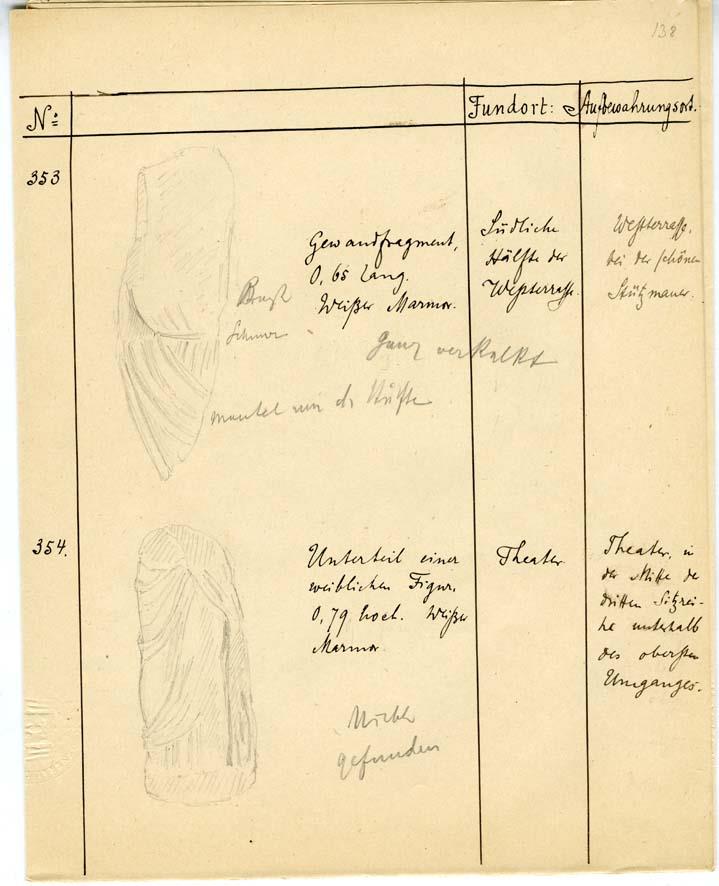 138
No: Fundort: Aufbewahrungsort.
353
Gewandfragment,
0,65 lang.
Weißer Marmor.
Südliche
Hälfte der
Westterrasse.
Westterrasse,
bei der schönen
Stützmauer.
Brust
Schnur
Ganz verkalkt
mantel um die Hüfte
354.
Unterteil einer
weiblichen Figur.
0,79 hoch. Weißer
Marmor.
Theater.
Theater, in
der Mitte der
dritten Sitzrei-
he unterhalb
des obersten
Umganges.
Nicht
gefunden